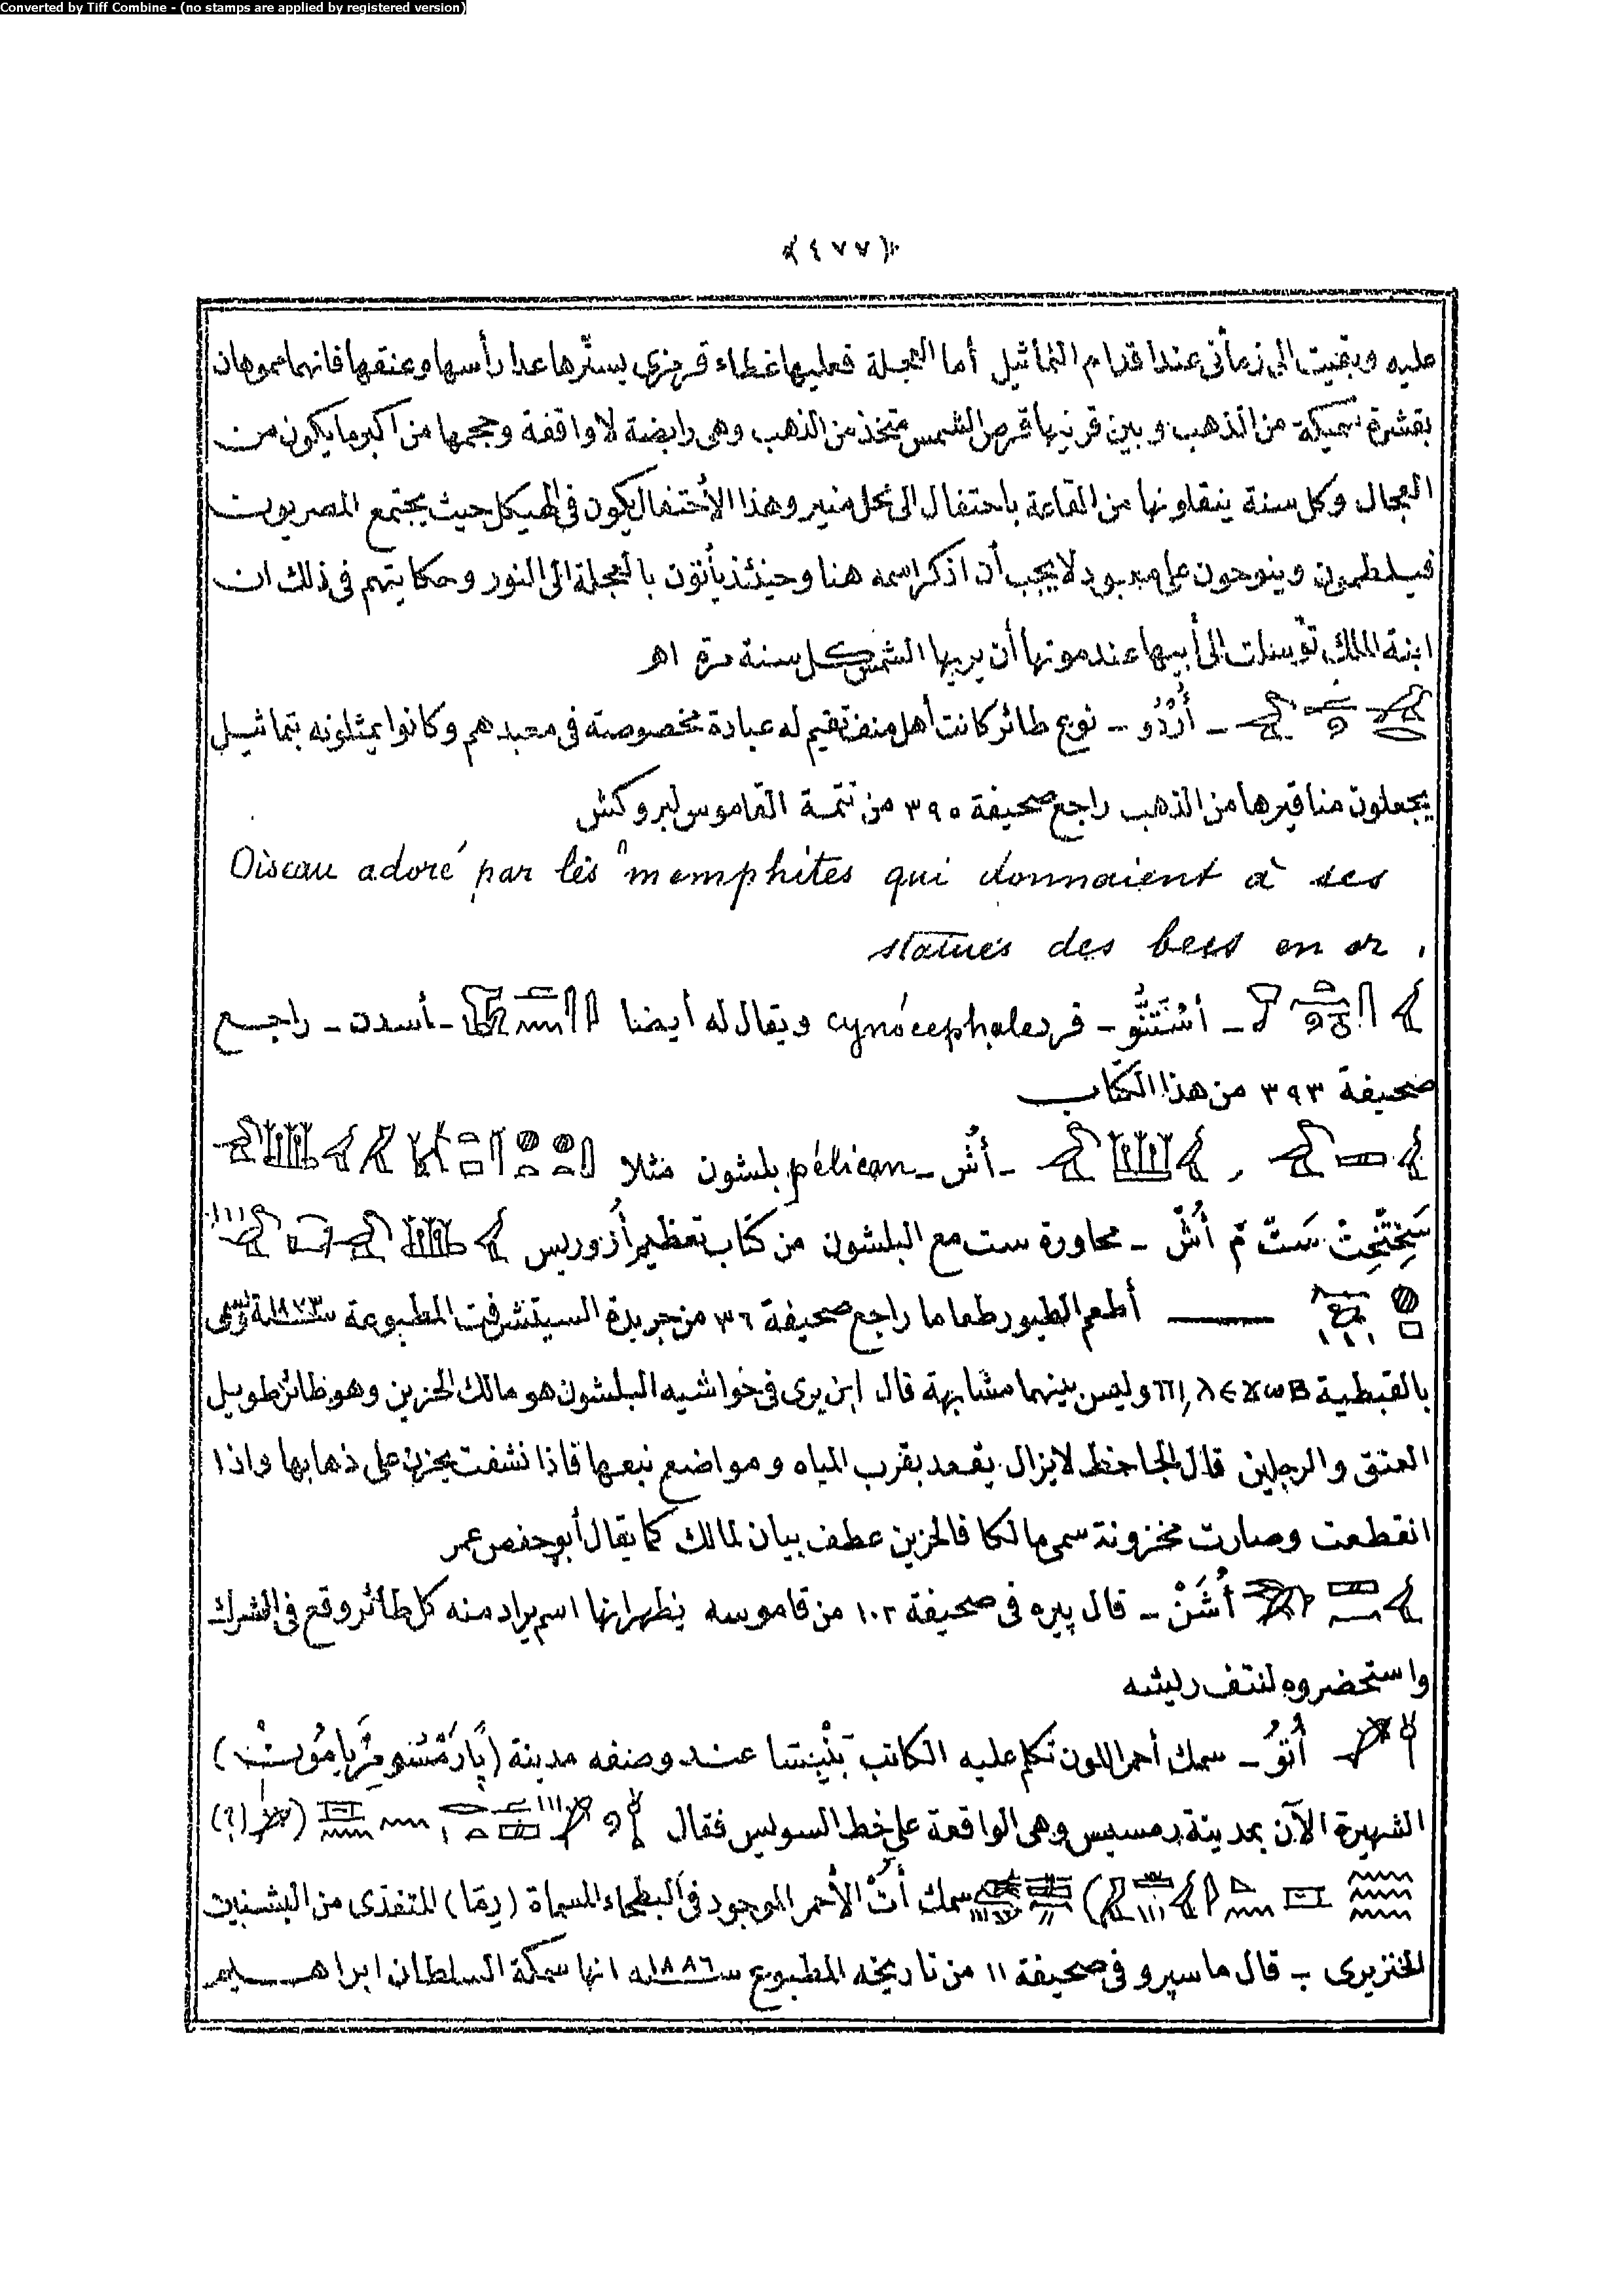 Converted by Tiff Combine - (no stamps are applied by registered version)
﴿٤٧٧﴾
عليه وبقيت الى زمانى عند اقدام التماثيل أما العجلة فعليها غطاء قرمزى يسترها عدا رأسها وعنقها فانهما مموهان
بقشرة سميكة من الذهب وبين قرنيها قرص الشمس متخذ من الذهب وهى رابضة لا واقفة وحجمها من اكبر ما يكون من
العجال وكل سنة ينقلونها من القاعة باحتفال الى محل منير وهذا الأحتفال يكون فى الهيكل حيث يجتمع المصريون
فيلطمون وينوحون على معبود لا يجب أن اذكر اسمه هنا وحينئذ يأتون بالعجلة الى النور وحكايتهم فى ذلك ان
ابنة الملك توسلت الى أبيها عند موتها أن يريها الشمس كل سنة مرة اه
ـ أُرْدُو ـ نوع طائر كانت أهل منف تقيم له عبادة مخصوصة فى معبدهم وكانوا يمثلونه بتماثيل
يجعلون مناقيرها من الذهب راجع صحيفة ٣٩٥ من تتمة القاموس لبروكش
Oiseau adoré par les memphites qui donnaient à ses
statues des becs en or.
ـ أسْتَنُّو ـ قرد cynocephale ويقال له أيضا ـ أسدن ـ راجع
صحيفة ٣٩٣ من هذا الكتاب
ـ أُشْ ـ pélican بلشون مثلا
سَخِتْخِتْ سَتّ مّ أُشّ ـ محاورة ست مع البلشون من كتاب تعظيم أزوريس
أطعم الطيور طعاما راجع صحيفة ٣٦ من جريدة السيتشرفت المطبوعة سنة ١٨٧٣
بالقبطية وليس بينهما مشابهة قال ابن برى فى حواشيه البلشون هو مالك الحزين وهو طائر طويل
العنق والرجلين قال الجاحظ لا يزال يقعد بقرب المياه ومواضع نبعها فاذا نشفت يحزن على ذهابها واذا
انقطعت وصارت مخزونة سمى مالكا فالحزين عطف بيان لمالك كما يقال أبو حفص عمر
أُشَنْ ـ قال پيره فى صحيفة ١٠٢ من قاموسه يظهر انها اسم يراد منه كل طائر وقع فى الشرك
واستحضروه لنتف ريشه
أُتوُ ـ سمك أحمر اللون تكلم عليه الكاتب عند وصفه مدينة
الشهيرة الآن بمدينة رمسيس وهى الواقعة على خط السويس فقال (؟)
سمك أُتْ الأحمر الموجود فى البطحاء المسماة المتغذى من البشنين
الخنزيرى ـ قال ماسپرو فى صحيفة ١١ من تاريخه المطبوع سنة ١٨٨٦ انها سمكة السلطان ابراهيم